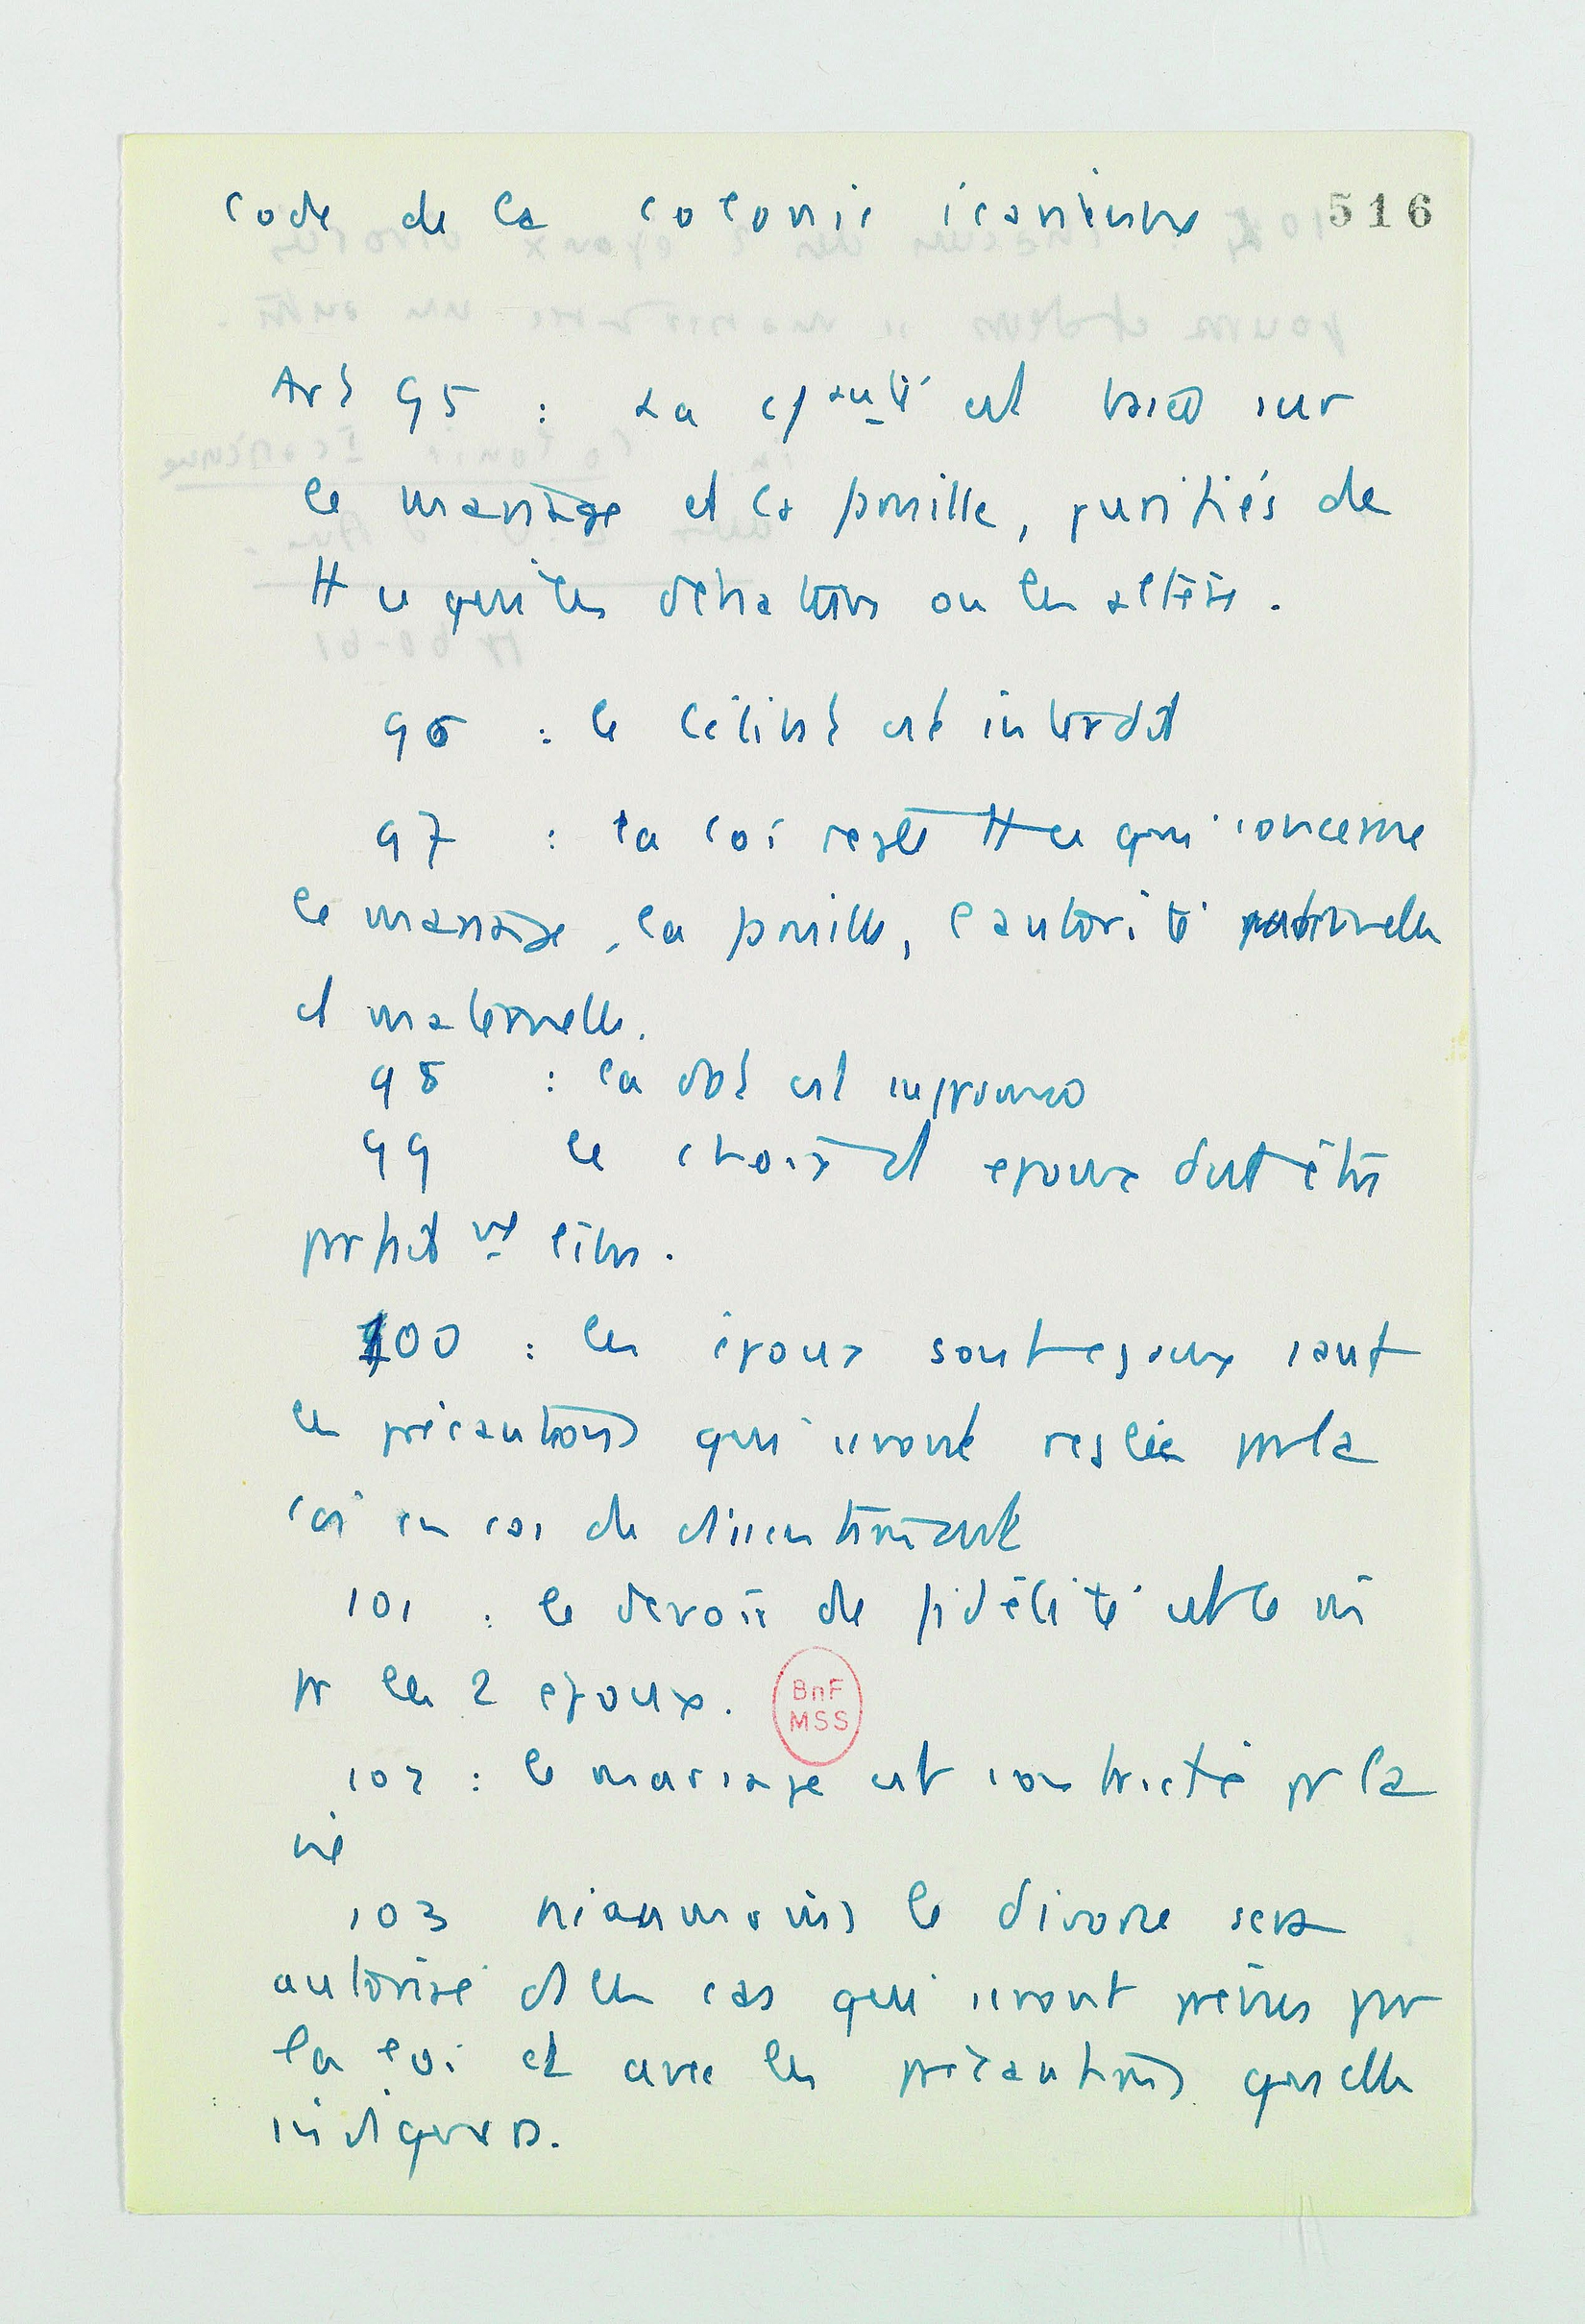 Code de la colonie icarienne 516
Art 95 : La cté est basée sur
le mariage et la famille, purifiés de
tt ce qui les dénature ou les altère.
96 : le célibat est interdit
97 : la loi règle tt ce qui concerne
le mariage, la famille, l'autorité paternelle
et maternelle.
98 : la dot est supprimée
99 le choix d époux doit être
parfait nt libre.
100 : les époux sont égaux sauf
les précautions qui seront réglées par la
loi en cas de dissentiment
101 : le devoir de fidélité est le m
pr les 2 époux.
BnF
MSS
102 : le mariage est contracté pr la
vie
103 néanmoins le divorce sera
autorisé ds les cas qui seront prévus par
la loi et avec les précautions qu'elle
indiquera.